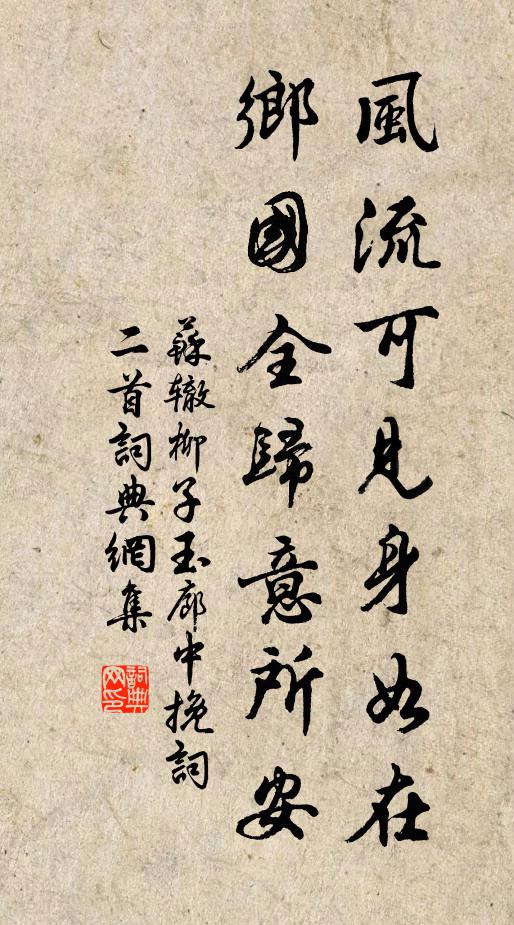 風流可見身如在
鄉國全歸意所安
蘇辙柳子玉郎中挽詞
二首詞典網集
詞典
网印